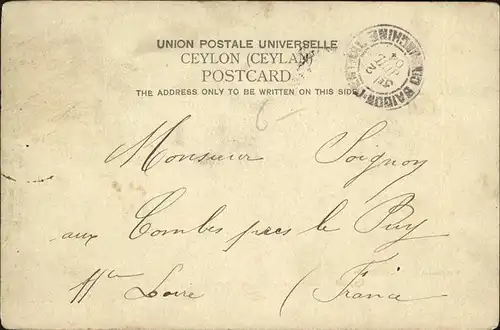 UNION POSTALE UNIVERSELLE
CEYLON (CEYLAN)
POSTCARD
THE ADDRESS ONLY TO BE WRITTEN ON THIS SIDE.
SAIGON-CENTRAL COCHINCHINE
6-
Monsieur Soignoy
aux Combes près le Puy
Hte Loire (France